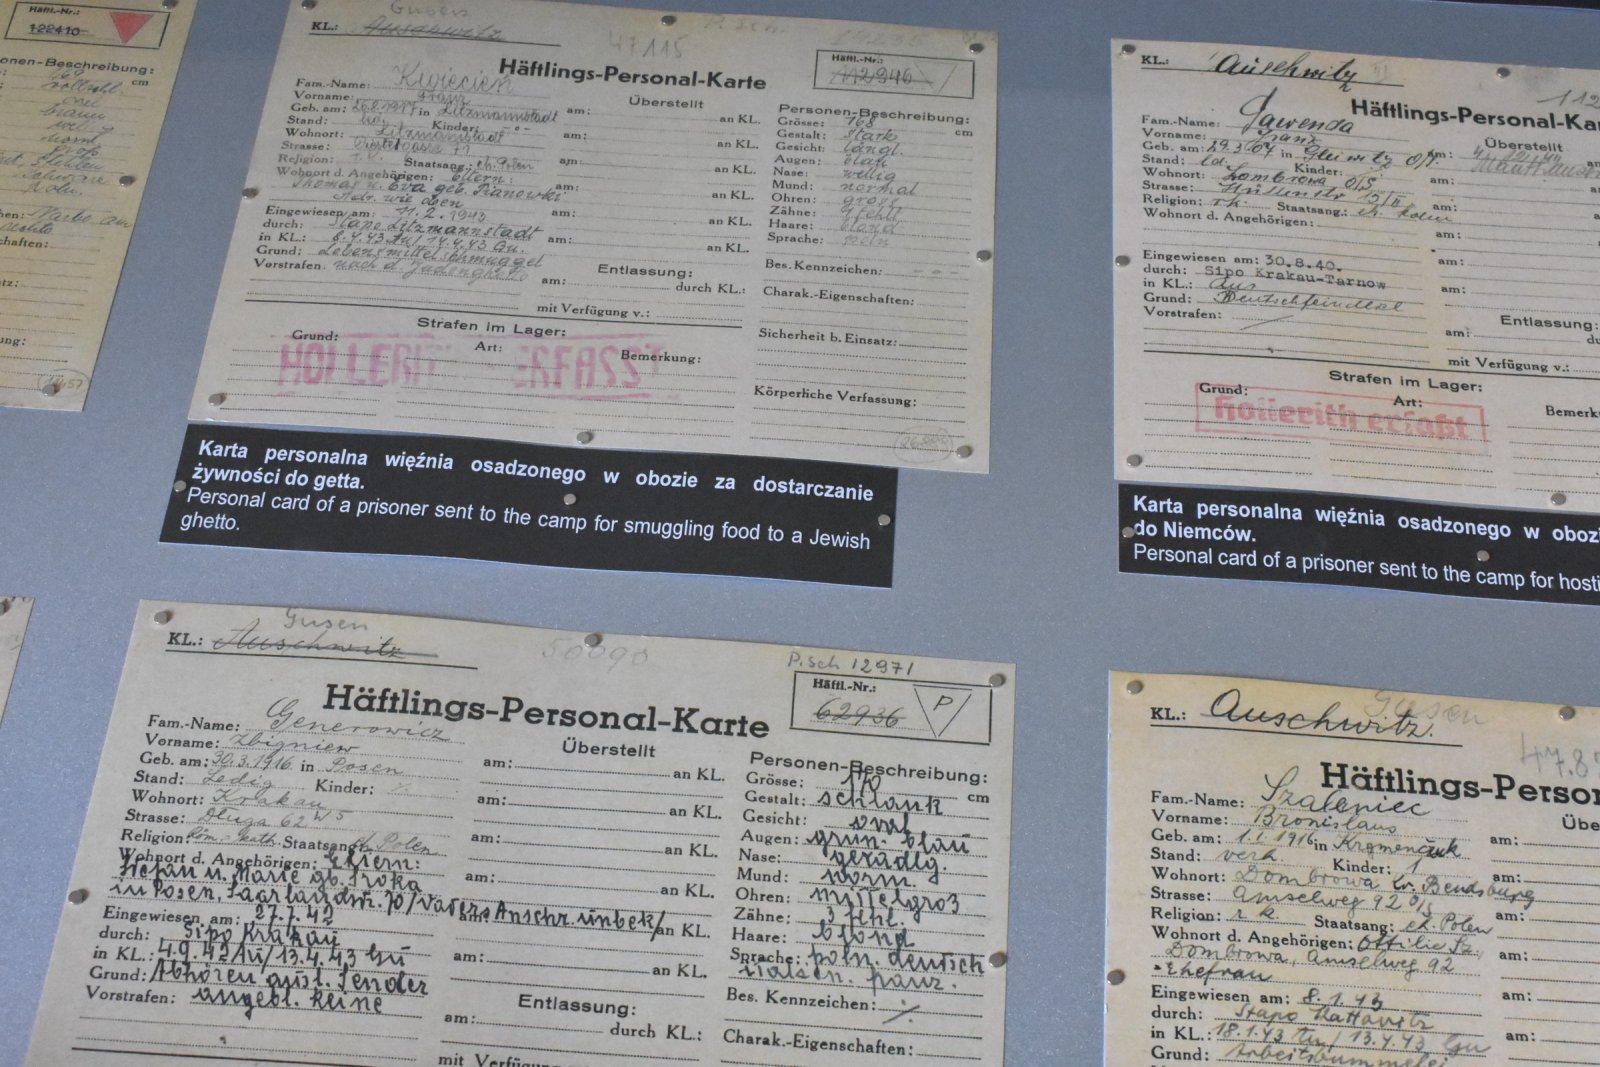 Häftl.-Nr.:
122410
Personen-Beschreibung:
cm
KL.: Gusen Auschwitz
47115
Häftlings-Personal-Karte
Häftl.-Nr.:
Fam.-Name: Kwiecien
Vorname: Franz
Geb. am: in Litzmannstadt
Stand: Kinder: - o -
Wohnort: Litzmannstadt
Strasse:
Religion: Staatsang.: eh. Polen
Wohnort d. Angehörigen: Eltern:
Thomas u. Eva geb. Pianowski
Adr. wie oben
Eingewiesen am: 11.2.1943
durch: Stapo Litzmannstadt
in KL.: 8.4.43 Au/ 14.4.43 Gu.
Grund: Lebensmittelschmuggel
Vorstrafen: nach d. Judenghetto
Überstellt
am: an KL.
am: an KL.
am: an KL.
am: an KL.
am: an KL.
am: an KL.
Entlassung:
am: durch KL.:
mit Verfügung v.:
Personen-Beschreibung:
Grösse: 168 cm
Gestalt: stark
Gesicht: längl.
Augen: blau
Nase: wellig
Mund: normal
Ohren: gross
Zähne: fehlt
Haare: blond
Sprache: poln
Bes. Kennzeichen: - o -
Charak.-Eigenschaften:
Sicherheit b. Einsatz:
Körperliche Verfassung:
Strafen im Lager:
Grund: Art: Bemerkung:
HOLLERITH ERFASST
Karta personalna więźnia osadzonego w obozie za dostarczanie
żywności do getta.
Personal card of a prisoner sent to the camp for smuggling food to a Jewish
ghetto.
KL.: Auschwitz
112
Häftlings-Personal-Ka
Fam.-Name: Gawenda
Vorname: Franz
Geb. am: 29.3.07 in Gleiwitz O/S.
Stand: ld. Kinder:
Wohnort: Dombrowa O/S
Strasse: Hüttenstr 15/II
Religion: r.k. Staatsang.: eh. Polen
Wohnort d. Angehörigen:
Eingewiesen am: 30.8.40.
durch: Sipo Krakau-Tarnow
in KL.: Aus
Grund: Deutschfeindlich
Vorstrafen:
Überstellt
am:
am:
am:
am:
am:
Entlassung:
am:
mit Verfügung v.:
Strafen im Lager:
Grund: Art: Bemerk
Hollerith erfaßt
Karta personalna więźnia osadzonego w obozi
do Niemców.
Personal card of a prisoner sent to the camp for hosti
KL.: Gusen Auschwitz
50090
P.sch 12971
Häftlings-Personal-Karte
Häftl.-Nr.:
62936
P
Fam.-Name: Generowicz
Vorname: Zbigniew
Geb. am: 30.3.1916 in Posen
Stand: Ledig Kinder:
Wohnort: Krakau
Strasse: Długa 62 W 5
Religion: Röm-Kath. Staatsang.: eh. Polen
Wohnort d. Angehörigen: Eltern:
Stefan u. Marie gb. Sroka
in Posen, Saarlandstr. 70/Vaters Anschr. unbek/
Eingewiesen am: 27.7.42
durch: Sipo Krakau
in KL.: 4.9.42 Au/ 13.4.43 Gu
Grund: Abhören ausl. Sender
Vorstrafen: angebl. keine
Überstellt
am: an KL.
am: an KL.
am: an KL.
am: an KL.
an KL.
am: an KL.
Entlassung:
am: durch KL.:
mit Verfügun
Personen-Beschreibung:
Grösse: 170 cm
Gestalt: schlank
Gesicht: oval
Augen: grün-blau
Nase: geradlg.
Mund: norm.
Ohren: mittelgroß
Zähne: 3 fehl.
Haare: blond
Sprache: poln. deutsch
italien. franz.
Bes. Kennzeichen: ./.
Charak.-Eigenschaften:
KL.: Auschwitz. Gusen
47.8
Häftlings-Person
Fam.-Name: Szaleniec
Vorname: Bronislaus
Geb. am: 1.1.1916 in Kromenczuk
Stand: verh Kinder: 1
Wohnort: Dombrowa kr. Bendsburg
Strasse: Amselweg 92 O/S
Religion: r k. Staatsang.: eh. Polen
Wohnort d. Angehörigen: Ottilie Sz.,
Dombrowa, Amselweg 92
- Ehefrau
Eingewiesen am: 8.1.43
durch: Stapo Kattowitz
in KL.: 18.1.43 Au/ 13.4.43 Gu
Grund: Arbeitsbummelei
Übe
am:
am:
am:
am:
am:
am:
am: